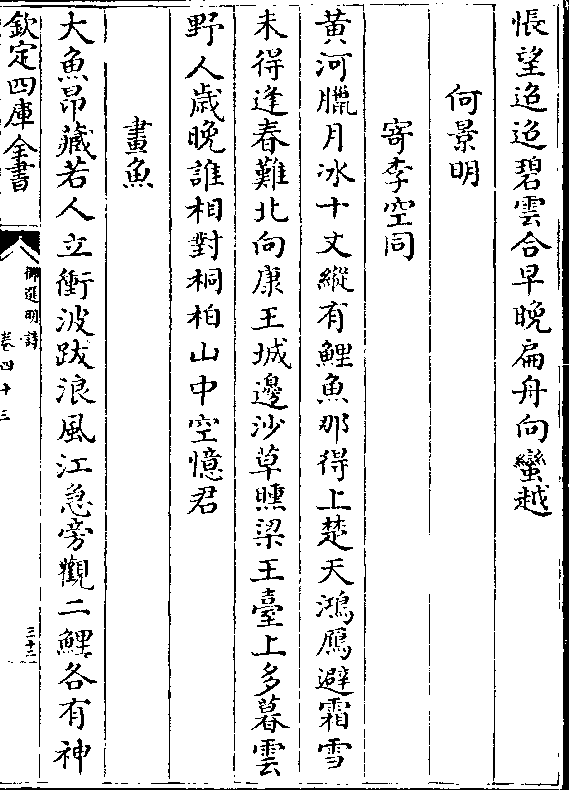 悵望迢迢碧雲合早晚扁舟向蠻越
何景明
寄李空同
黄河臘月冰十丈縱有鯉魚那得上楚天鴻鴈避霜雪
未得逢春難北向康王城邊沙草曛梁王臺上多暮雲
野人歲晚誰相對桐柏山中空憶君
畫魚
大魚昂藏若人立衝波跋浪風江急旁觀二鯉各有神
欽定四庫全書
御選明詩
卷四十三
三十二